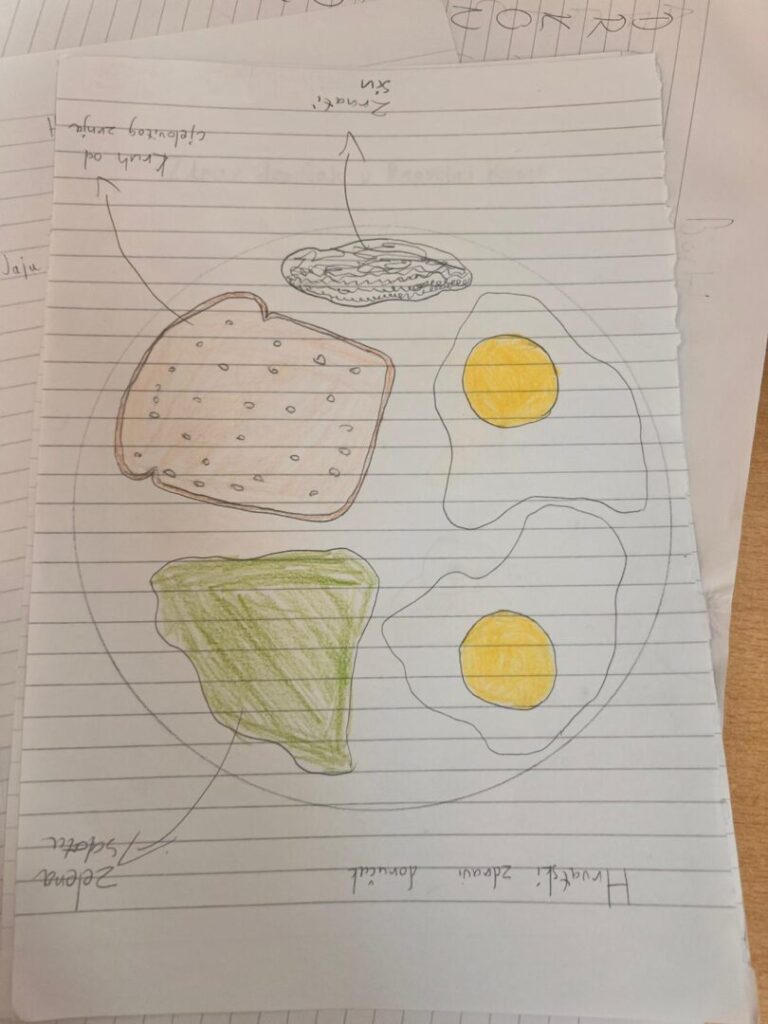 Hrvatski zdravi doručak
zelena
salata
Kruh od
cjelovitog zrnja
Zrnati
sir